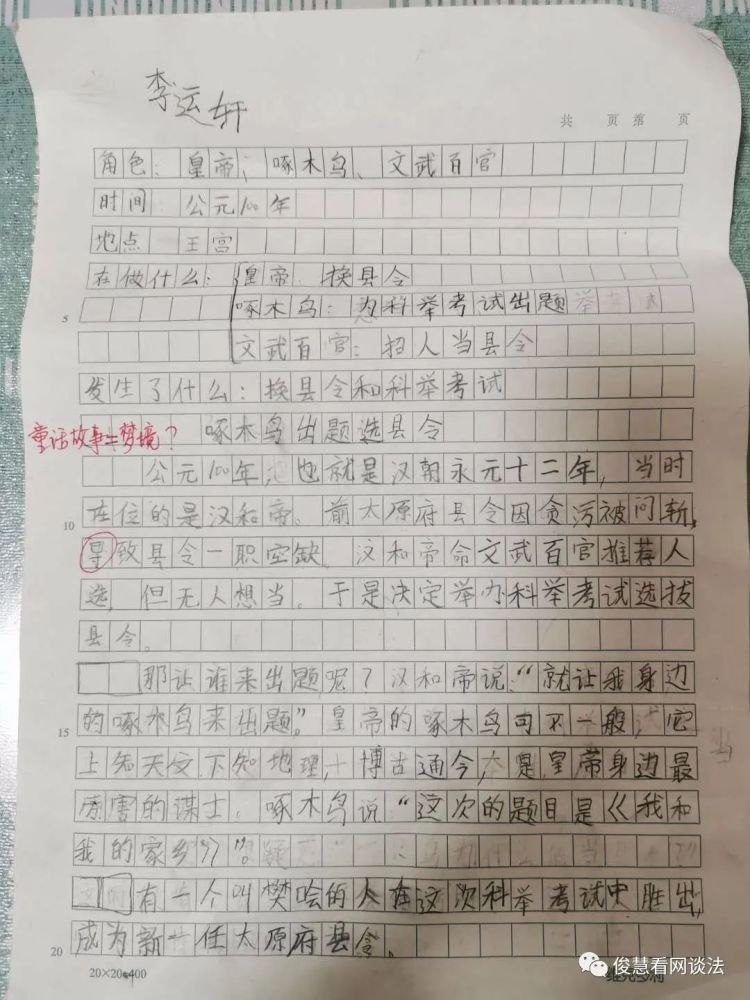 李运轩
共 页 第 页
角色：皇帝、啄木鸟、文武百官
时间 公元100年
地点 王宫
在做什么：皇帝：换县令
5 啄木鸟：为科举考试出题
文武百官：招人当县令
发生了什么：换县令和科举考试
童话故事=梦境？
啄木鸟出题选县令
公元100年，也就是汉朝永元十二年，当时
10 在位的是汉和帝。前太原府县令因贪污被问斩，
导致县令一职空缺。汉和帝命文武百官推荐人
选，但无人想当。于是决定举办科举考试选拔
县令。
那让谁来出题呢？汉和帝说：“就让我身边
15 的啄木鸟来出题。”皇帝的啄木鸟可不一般，它
上知天文，下知地理，博古通今，是皇帝身边最
厉害的谋士。啄木鸟说“这次的题目是《我和
我的家乡》”。
有一个叫樊哙的人在这次科举考试中胜出，
20 成为新一任太原府县令。
20×20=400
俊慧看网谈法